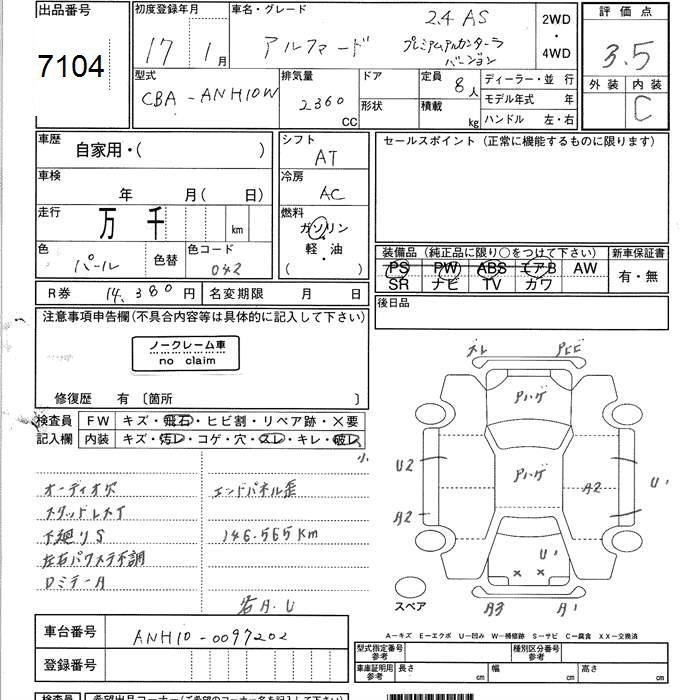 出品番号
7104
初度登録年月
17年 1月
車名・グレード
アルファード
2.4 AS
プレミアムアルカンターラ
バージョン
2WD
・
4WD
評価点
3.5
外装 内装
C
型式
CBA-ANH10W
排気量
2360
CC
ドア
形状
定員 8人
積載 kg
ディーラー・並行
モデル年式 年
ハンドル 左・右
車歴
自家用・( )
車検
年 月( 日)
走行
万 千 km
色
パール
色替
色コード
042
シフト
AT
冷房
AC
燃料
ガソリン
軽・油
( )
R券 14,380円
名変期限 月 日
セールスポイント (正常に機能するものに限ります)
装備品 (純正品に限り○をつけて下さい)
PS PW ABS エアB AW
SR ナビ TV カワ
新車保証書
有・無
後日品
注意事項申告欄(不具合内容等は具体的に記入して下さい)
ノークレーム車
no claim
修復歴 有 〔箇所 〕
検査員
記入欄
FW キズ・飛石・ヒビ割・リペア跡・×要
内装 キズ・汚レ・コゲ・穴・スレ・キレ・破レ
小
オーディオ欠
エンドパネル歪
下廻りS
146.565Km
左右パワステ不調
右A.U
ズレ
アハゲ
アハゲ
U2
A2
A2
U'
U'
× ×
A3
A'
スペア
車台番号
ANH10-0097202
登録番号
A−キズ E−エクボ U−凹み W−補修跡 S−サビ C−腐食 XX−交換済
型式指定番号
参考
種別区分番号
参考
車庫証明用
参考
長さ cm
幅 cm
高さ cm
検査員
希望出品コーナー(ご希望のコーナー名を記入下さい)